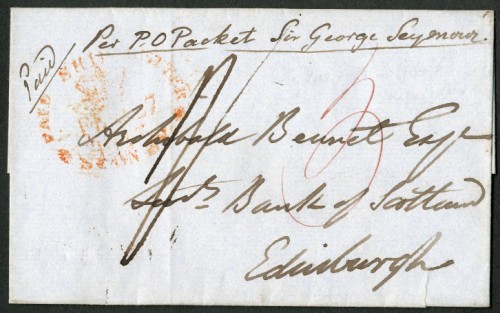 Paid
Per P.O Packet Sir George Seymour.
PAID SHIP LETTER
Archibald Bennet Esqr
Secy. Bank of Scotland
Edinburgh